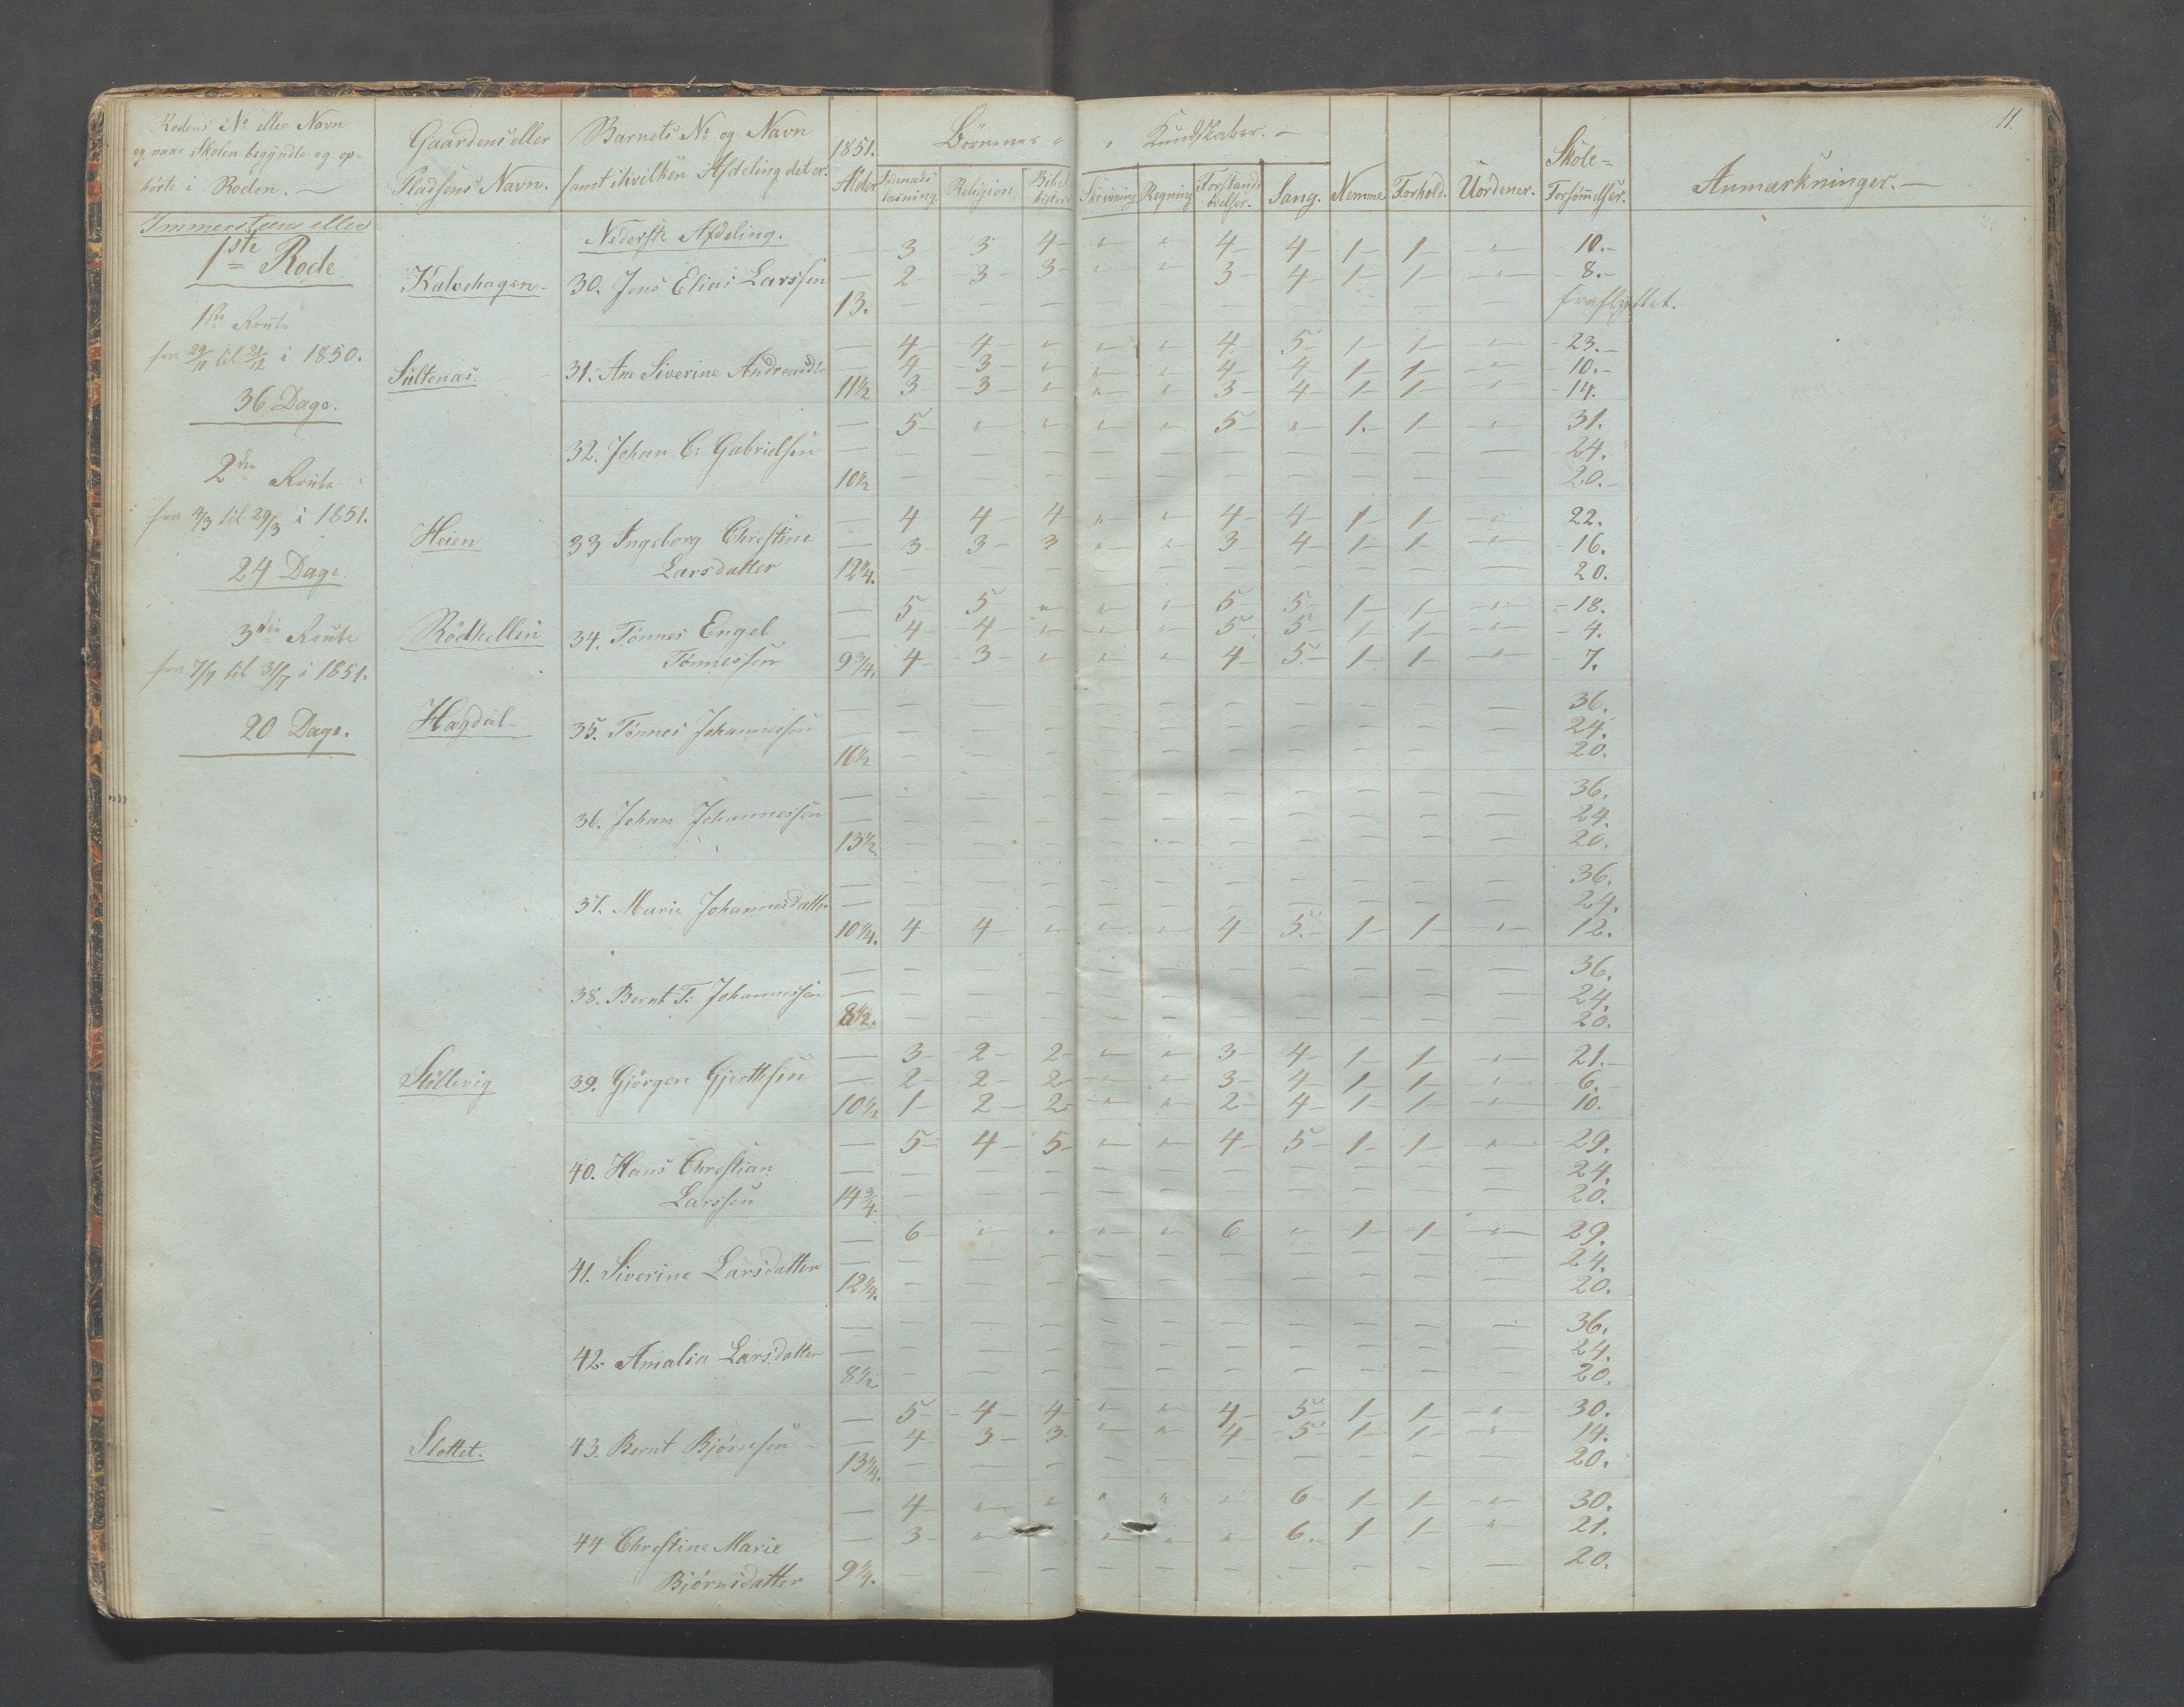 11.
Rodens No eller Navn
og naar Skolen begyndte og op=
hørte i Roden. —
Gaardens eller
Pladsens Navn.
Barnets No og Navn
samt i hvilken Afdeling det er.
1851.
Alder
Børnenes " " Kundskaber. —
Religion
Bibel
Skrivning
Regning
Forstands
øvelser.
Sang.
Nemme
Forhold.
Uordener.
Skole=
Forsømmelser.
Anmærkninger. —
Immerstein eller
1ste Rode
Nederste Afdeling.
— 3 3 4 " " 4 4 1 1 " 10.
Kalvehagen 30. Jens Elias Larssen — 2 3 3 " " 3 4 1 1 " 8.
13. — — — — — — — — — — fraflyttet.
1ste Route
fra 29/11 til 21/12 i 1850.
36 Dage.
— 4 4 " " " 4 5 1 1 " 23.
Sultenas. 31. Ane Siverine Andreasdtr — 4 3 " " " 4 4 1 1 " 10.
11 1/2 3 3 " " " 3 4 1 1 " 14.
— 5 " " " " 5 " 1 1 " 31.
32. Johan C: Gabrielsen — — — — — — — — — — — 24.
10 1/2 — — — — — — — — — — 20.
2den Route
fra 4/3 til 29/3 i 1851.
24 Dage.
— 4 4 4 " " 4 4 1 1 " 22.
Heien 33 Ingeborg Christine — 3 3 3 " " 3 4 1 1 " 16.
Larsdatter 12 1/4. — — — — — — — — — — 20.
3die Route
fra 7/7 til 31/7 i 1851.
20 Dage.
— 5 5 " " " 5 5 1 1 " 18.
Rödhellen 34. Tønnes Engel — 4 4 " " " 5 5 1 1 " 4.
Tønnessen 9 3/4. 4 3 " " " 4 5 1 1 " 7.
— — — — — — — — — — — 36.
Hægdal 35. Tønnes Johannessen — — — — — — — — — — — 24.
16 1/2 — — — — — — — — — — 20.
— — — — — — — — — — — 36.
36. Johan Johannessen — — — — — — — — — — — 24.
13 1/2 — — — — — — — — — — 20.
— — — — — — — — — — — 36.
37. Marie Johannesdatter — — — — — — — — — — — 24.
10 1/4. 4 4 " " " 4 5 1 1 " 12.
— — — — — — — — — — — 36.
38. Bernt T: Johannessen — — — — — — — — — — — 24.
8 1/2. — — — — — — — — — — 20.
— 3 2 2 " " 3 4 1 1 " 21.
Stöllevig 39. Gjörgen Gjerthsen — 2 2 2 " " 3 4 1 1 " 6.
10 1/2 1 2 2 " " 2 4 1 1 " 10.
— 5 4 5 " " 4 5 1 1 " 29.
40. Hans Christian — — — — — — — — — — — 24.
Larssen 14 3/4. — — — — — — — — — — 20.
— 6 " " " " 6 " 1 1 " 29.
41. Siverine Larsdatter — — — — — — — — — — — 24.
12 1/4. — — — — — — — — — — 20.
— — — — — — — — — — — 36.
42. Amalia Larsdatter — — — — — — — — — — — 24.
8 1/2 — — — — — — — — — — 20.
— 5 4 4 " " 4 5 1 1 " 30.
Slottet. 43. Bernt Bjørnsen — 4 3 3 " " 4 5 1 1 " 14.
13 1/4. — — — — — — — — — — 20.
— 4 " " " " " 6 1 1 " 30.
44 Christine Marie — 3 " " " " 6 1 1 " 21.
Bjørnsdatter 9 1/4. — — — — — — — — — — 20.